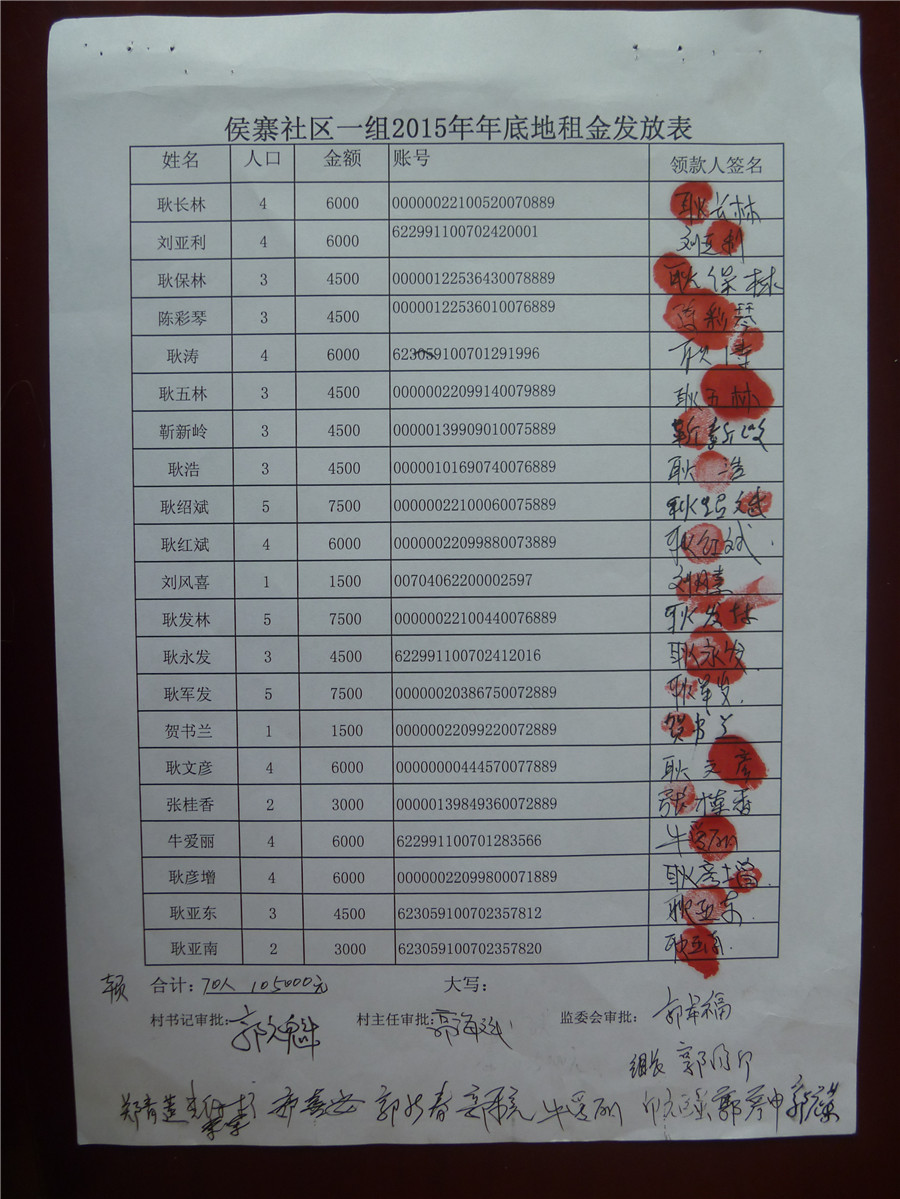 侯寨社区一组2015年年底地租金发放表
姓名 人口 金额 账号 领款人签名
耿长林 4 6000 00000022100520070889 耿长林
刘亚利 4 6000 622991100702420001 刘亚利
耿保林 3 4500 00000122536430078889 耿保林
陈彩琴 3 4500 00000122536010076889 陈彩琴
耿涛 4 6000 623059100701291996 耿涛
耿五林 3 4500 00000022099140079889 耿五林
靳新岭 3 4500 00000139909010075889 靳新岭
耿浩 3 4500 00000101690740076889 耿浩
耿绍斌 5 7500 00000022100060075889 耿绍斌
耿红斌 4 6000 00000022099880073889 耿红斌
刘风喜 1 1500 00704062200002597 刘风喜
耿发林 5 7500 00000022100440076889 耿发林
耿永发 3 4500 622991100702412016 耿永发
耿军发 5 7500 00000020386750072889 耿军发
贺书兰 1 1500 00000022099220072889 贺书兰
耿文彦 4 6000 00000000444570077889 耿文彦
张桂香 2 3000 00000139849360072889 张桂香
牛爱丽 4 6000 622991100701283566 牛爱丽
耿彦增 4 6000 00000022099800071889 耿彦增
耿亚东 3 4500 623059100702357812 耿亚东
耿亚南 2 3000 623059100702357820
合计：70人 105000元 大写：
村书记审批： 村主任审批： 监委会审批：
组长
郑青莲 牛爱丽